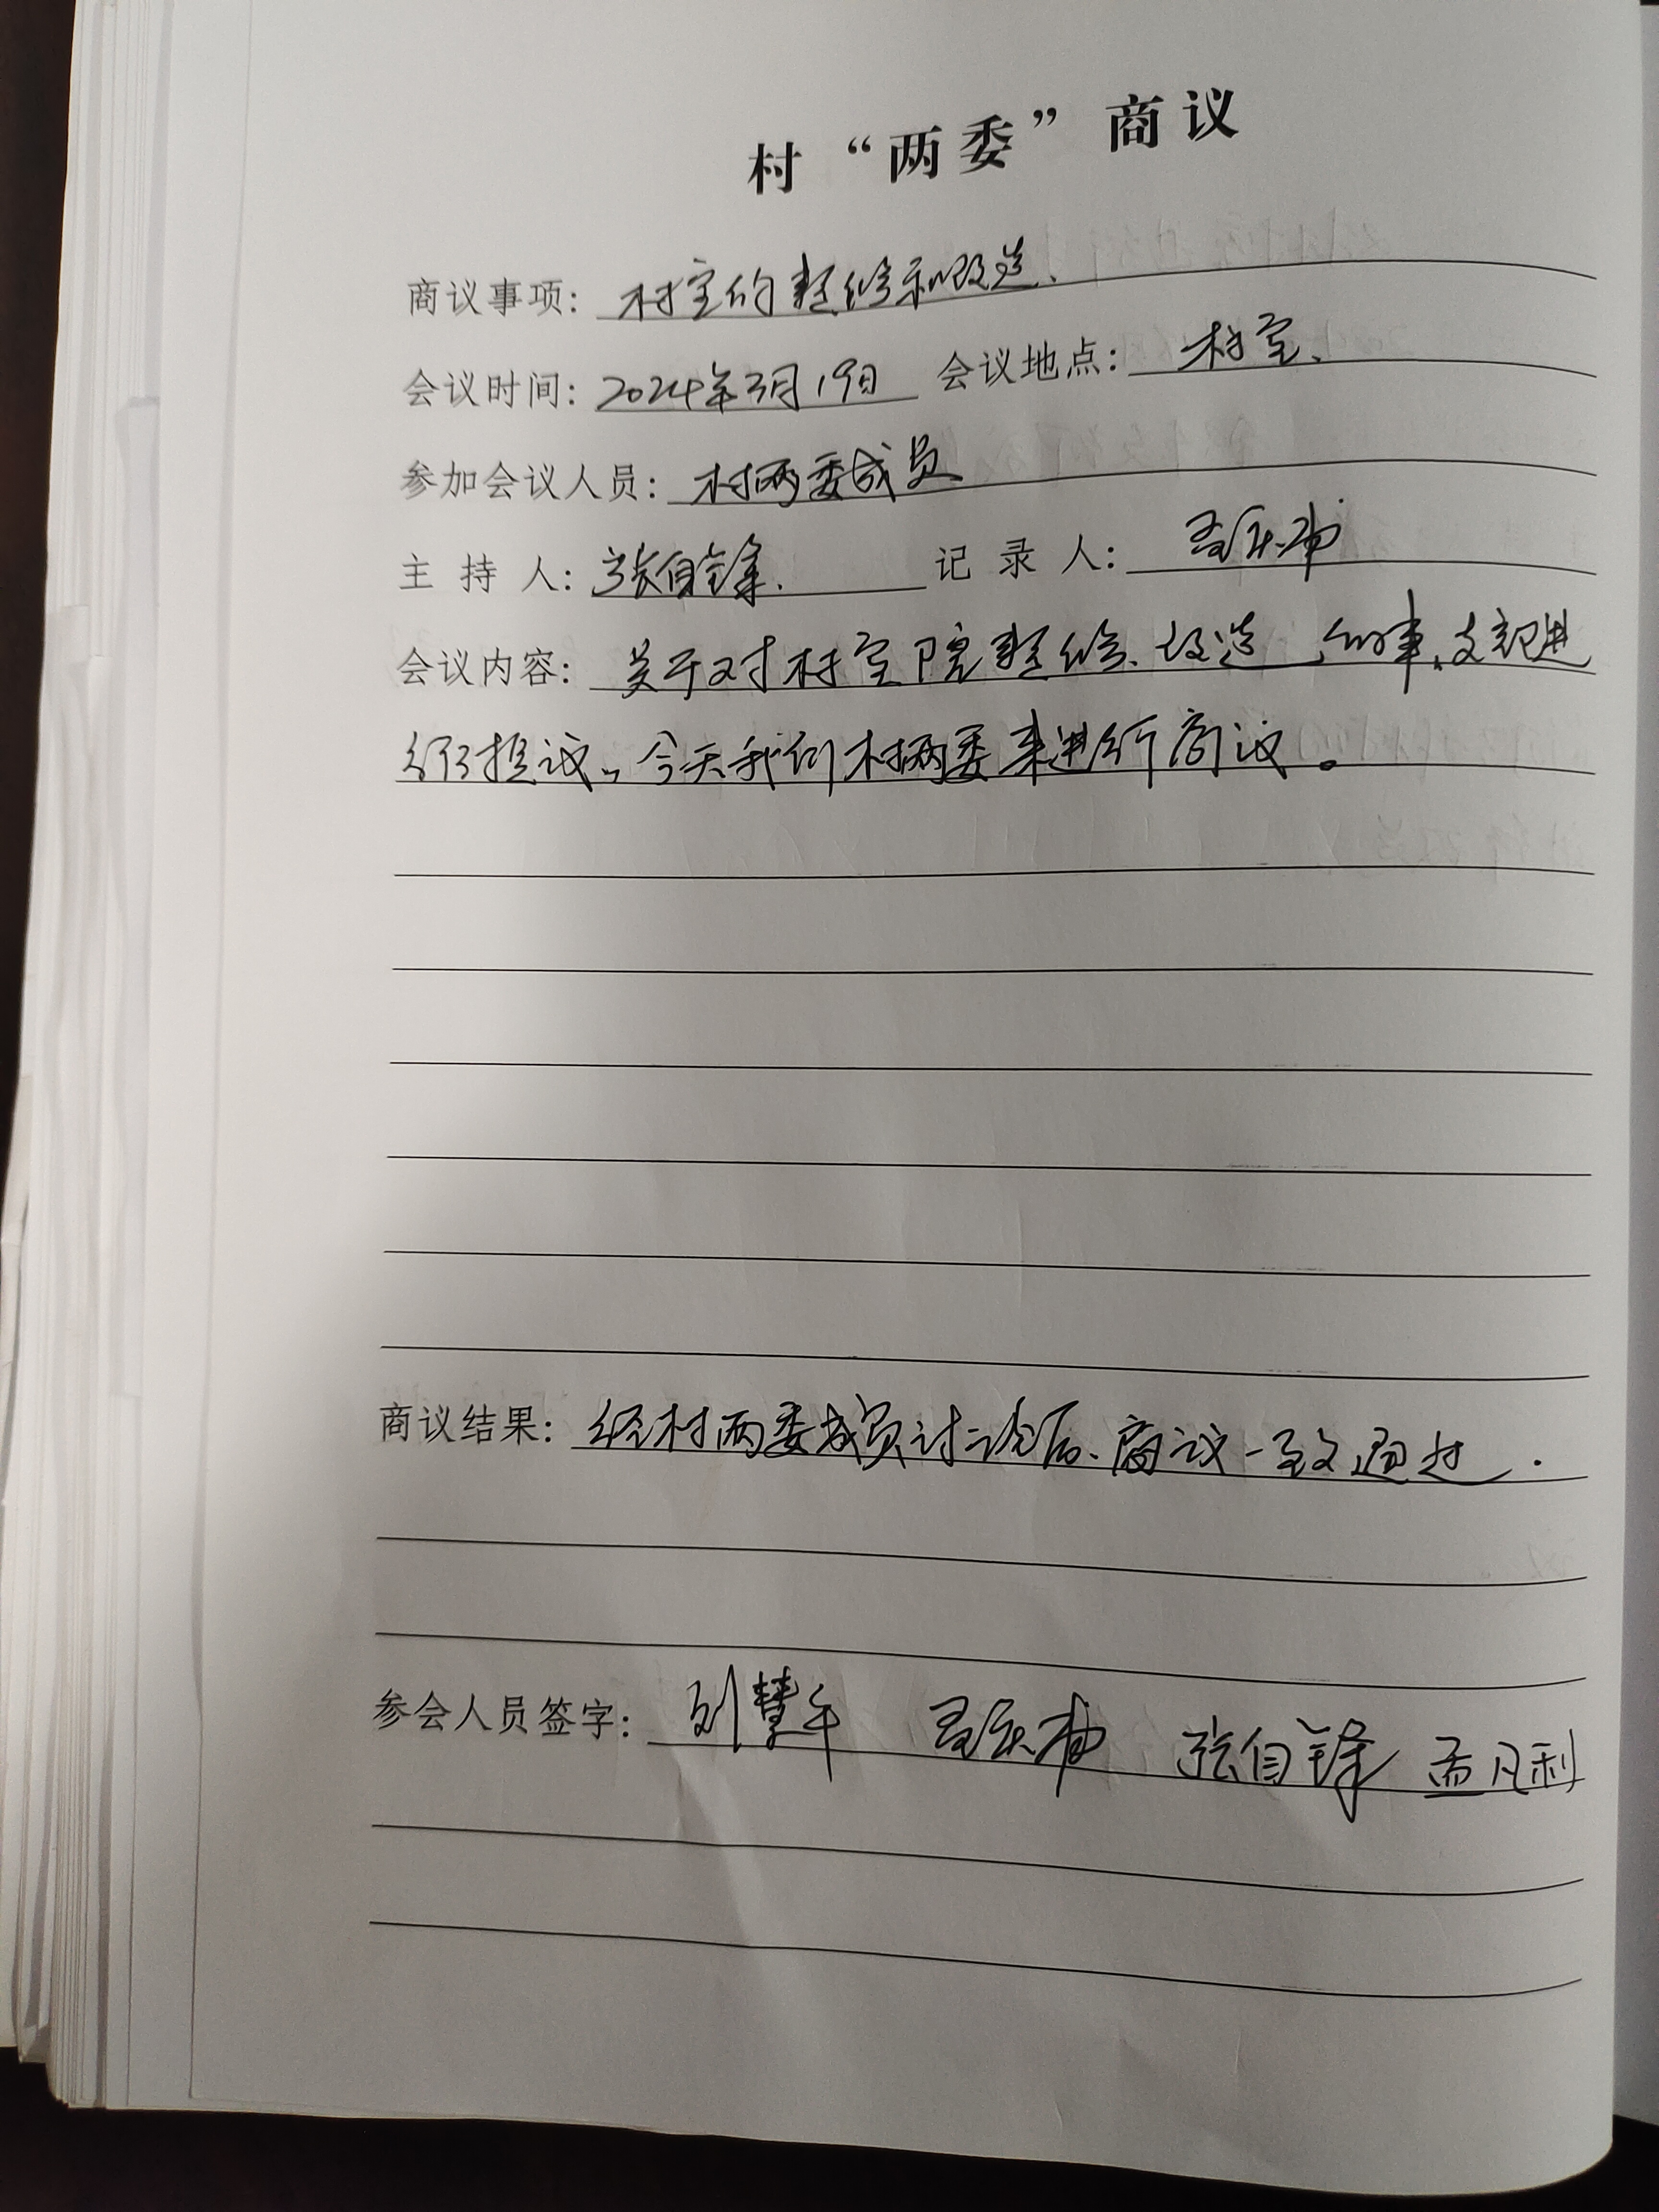 村“两委”商议
商议事项：村室的整修和改造、
会议时间：2024年3月19日 会议地点：村室、
参加会议人员：村两委成员
主持人：张自锋. 记录人：
会议内容：关于对村室院整修、改造的事、支部进
行提议、今天我们村两委来进行商议。
商议结果：经村两委成员讨论后、商议一致通过.
参会人员签字：刘慧午 张自锋 孟凡利